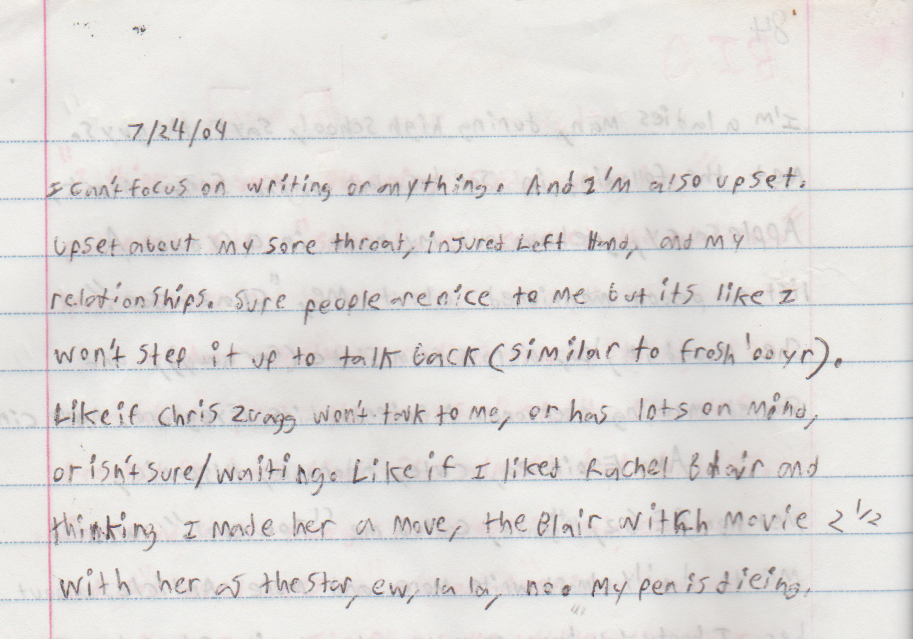 7/24/04
I can't focus on writing or anything. And I'm also upset.
Upset about my sore throat, injured Left Hand, and my
relationships. Sure people are nice to me but its like I
won't step it up to talk back (similar to frosh '00 yr).
Like if Chris Zragg won't talk to me, or has lots on mind,
or isn't sure/waiting. Like if I liked Rachel Blair and
thinking I made her a move, the Blair Witch movie 2 1/2
with her as the star, ew, la la, noo my pen is dieing.